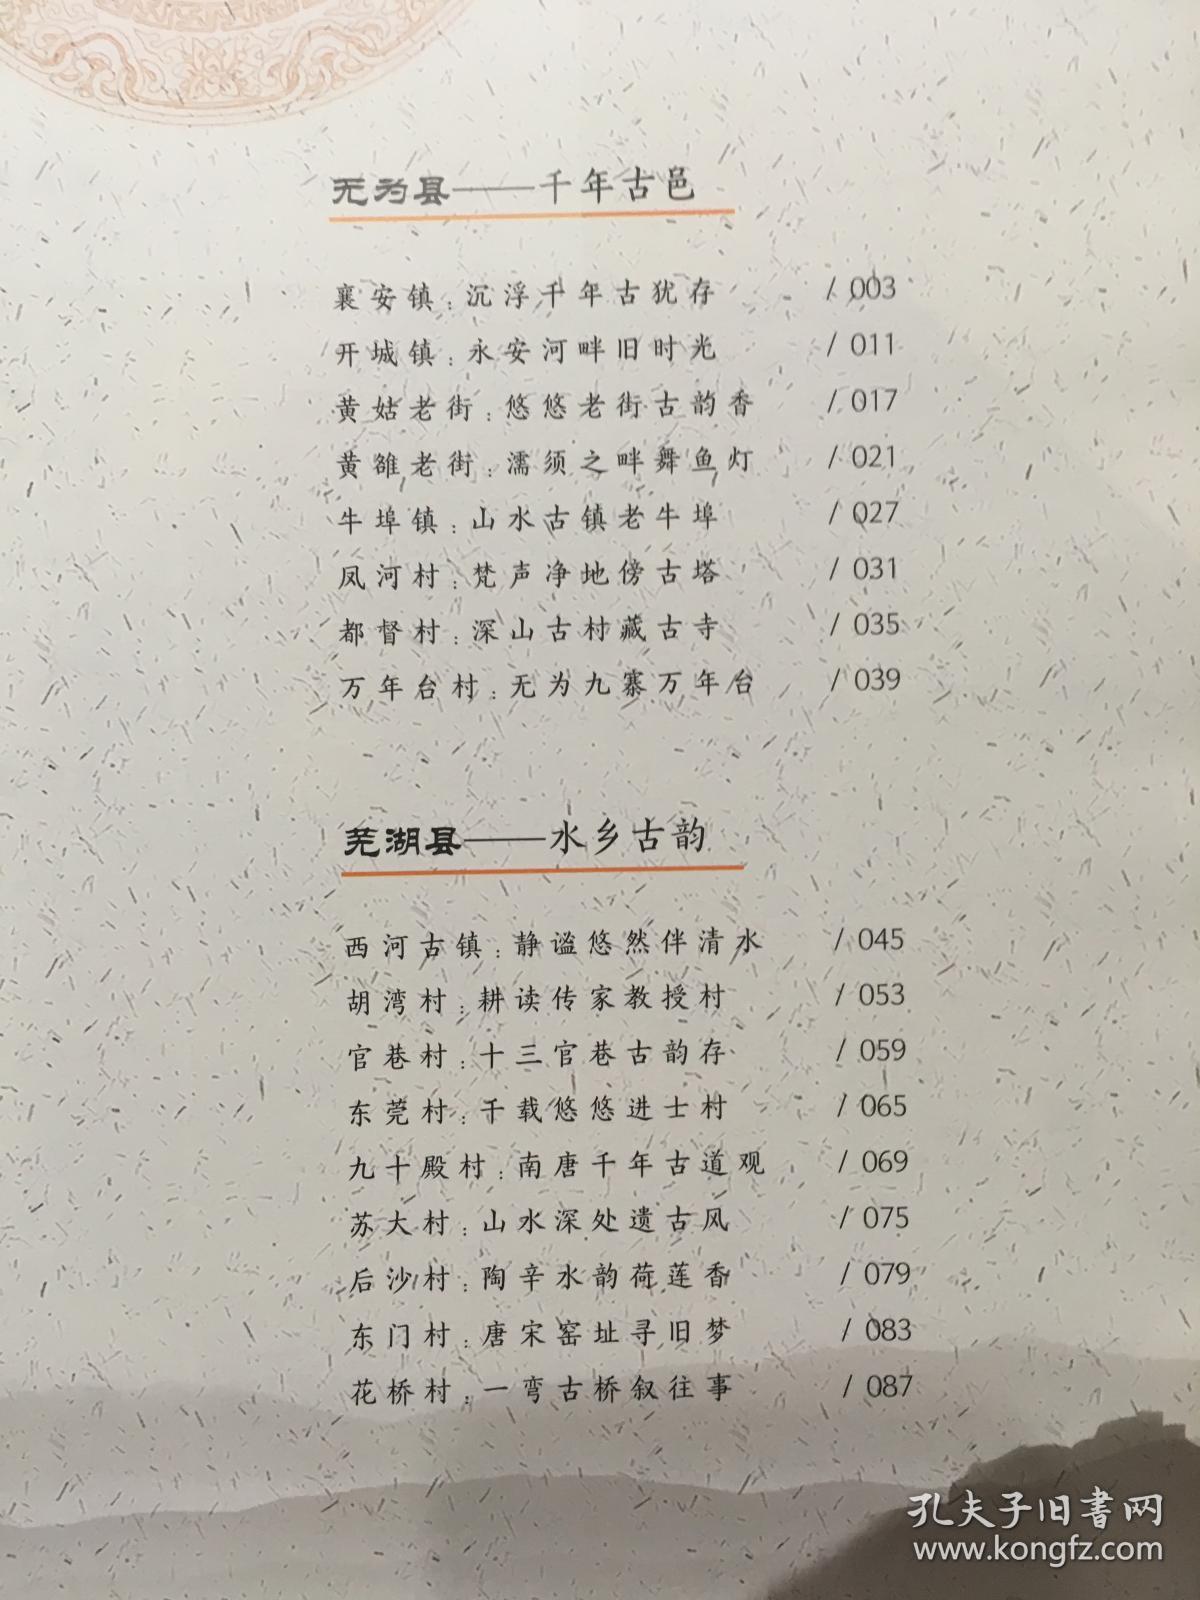 无为县——千年古邑
襄安镇：沉浮千年古犹存 / 003
开城镇：永安河畔旧时光 / 011
黄姑老街：悠悠老街古韵香 / 017
黄雒老街：濡须之畔舞鱼灯 / 021
牛埠镇：山水古镇老牛埠 / 027
凤河村：梵声净地傍古塔 / 031
都督村：深山古村藏古寺 / 035
万年台村：无为九寨万年台 / 039
芜湖县——水乡古韵
西河古镇：静谧悠然伴清水 / 045
胡湾村：耕读传家教授村 / 053
官巷村：十三官巷古韵存 / 059
东莞村：千载悠悠进士村 / 065
九十殿村：南唐千年古道观 / 069
苏大村：山水深处遗古风 / 075
后沙村：陶辛水韵荷莲香 / 079
东门村：唐宋窑址寻旧梦 / 083
花桥村：一弯古桥叙往事 / 087
孔夫子旧書网
www.kongfz.com